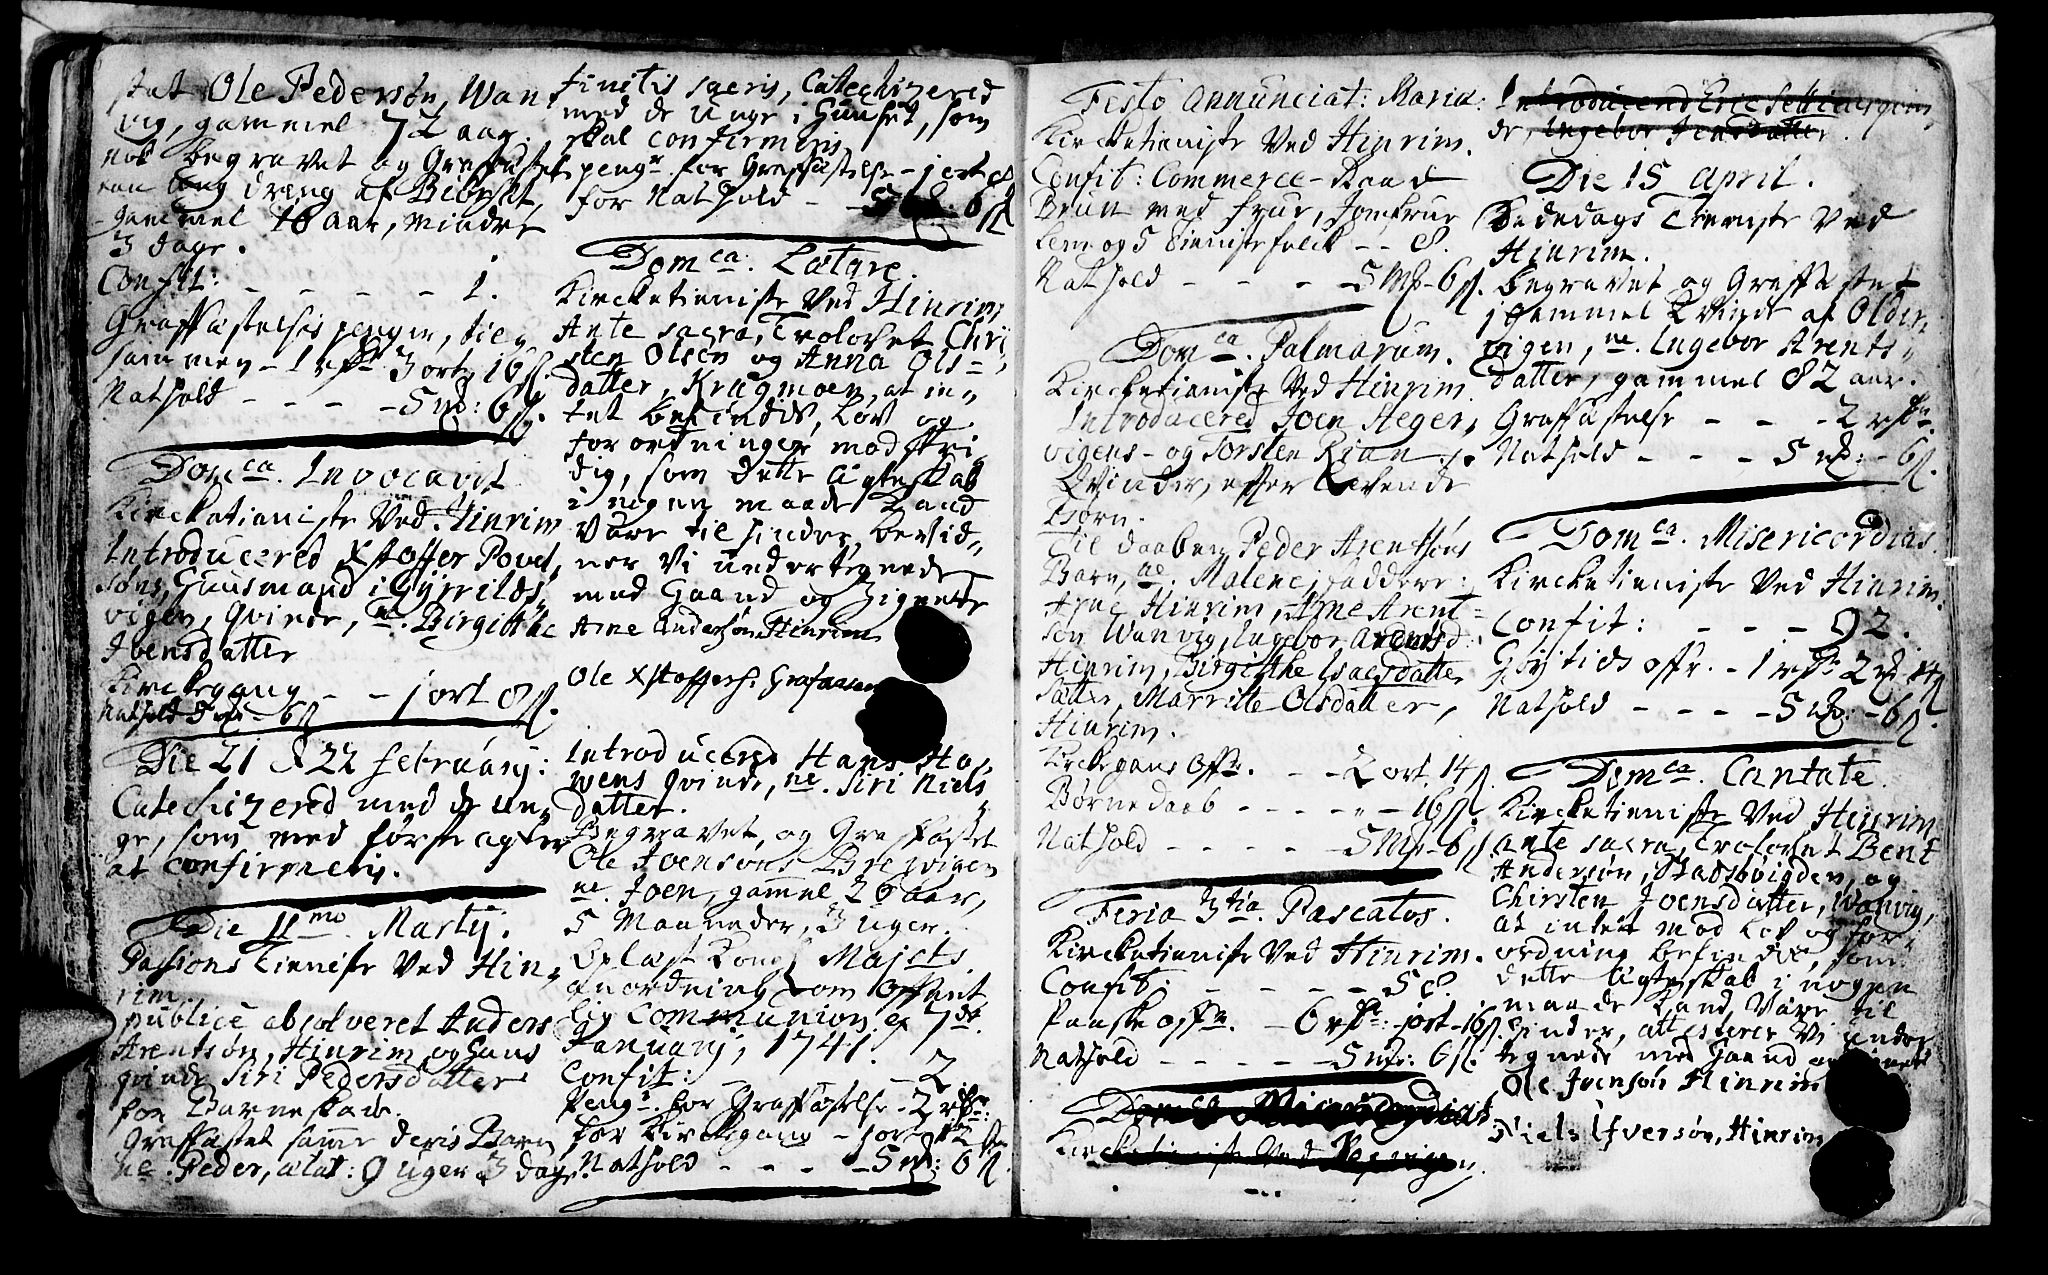 stet Ole Pedersøn, Wan-
vig, gammel 72 aar.
nok begravet og Graffæstet
een ung dreng af Bebygt,
gammel 18 aar, mindre
3 dage.
Confit: - - - - 1.
Graffæstelsis penger, til-
sammen - 1 rdr 3 ort 16 s.
Nathold - - - - 5 mk: 6 s.
Domca. Invocavit
Kircketieniste Ved Hinrim
Introducered Xstoffer Povel-
søns, Huusmand i Gyrrilds-
vigen, Qvinde, ne. Birgitthe
Joensdatter
Kirckegang - - 1 ort 8 s.
Nathold 5 mk - 6 s
Die 21 & 22 februarij:
Catechizered med de un-
ge, som med første agter
at confirmeris.
Die 11mo Martij.
Passions Tieniste Ved Hin-
rim.
publicè absolveret Anders
Arentsøn, Hinrim og Hans
qvinde Siri Pedersdatter
for Barneskab.
Graffæstet samme deris Barn
ne. Peder, ætat: 9 uger 3 dage.
finitis sacris, Catechizered
med de Unge i Huuset, som
skal confirmeris
pengr for Graffæstelse - 1 ort
for Nathold - - 5 mk 6 s
Domca. Lætare.
Kircketieniste Ved Hinrim
Ante sacra, Trolovet Chri-
sten Olsen og Anna Ols-
datter, Kragmoen, at in-
tet befindis, Lov og
forordninger modstri-
dig, som dette Ægteskab
i nogen maade Kand
være til hinder, bevid-
ner Vi undertegnede
med Haand og Zignete
Arne Andersøn Hinrim
Ole Xstoffers.
Introducered Hans Ha-
vens Qvinde, ne. Siri Niels
datter.
Begravet, og Graffæstet
Ole Joensøns Brevigen
ne. Joen, gamel 26 aar,
5 Maaneder, 3 uger.
Oplæst Kongl Majets
anordning om Offent
lig Communion af 7de
Januarj, 1741.
Confit: - - - - 2
Peng. for Graffæstelse - 2 rdr
for Kirckegang -
Nathold - - - - 5 mk: 6 s.
Festo Annunciat: Mariæ:
Kircketieniste Ved Hinrim.
Confit: Commerce-Raad
Brun med frue, Jomfrue
lene og 5 tienistefolck - - 8.
Nathold - - - - 5 Mk - 6 s.
Domca. Palmarum.
Kircketieniste Ved Hinrim.
Introducered Joen Heger-
vigens - og Torsten Rian
Qvinder, efter levende
Børn.
Til daaben Peder Arentsøns
Barn, ne. Malene; faddere:
Arne Hinrim, Arne Arent-
søn Wanvig, Ingebor Arentsd:
Hinrim, Birgitthe Isacsdatter
Sætter, Marritte Olsdatter,
Hinrim.
Kirkegans Offr. - - 2 ort. 14 s.
Børne daab - - - - - 16 s.
Nathold - - - - - 5 Mk - 6 s.
Feria 3tia. Pascatos.
Kircketieniste Ved Hinrim.
Confit: - - - - - 58.
Paaske offr. - 6 rdr: 1 ort - 16 s.
Nathold - - - - - 5 mk: 6 s.
Domca Misericordias
Kircketieniste Ved
Introducered Eric
de, Ingebor Jensdatter.
Die 15 April.
Bededags Tieniste Ved
Hinrim.
Begravet og Graffæstet
1 gammel Qvinde af Olden
vigen, ne. Ingebor Arents-
datter, gammel 82 aar.
Graffæstelse - - - 2 rdr.
Nathold - - - 5 mk: - 6 s.
Domca. Misericordias.
Kircketieniste Ved Hinrim.
Confit: - - - - 92.
Høytids offr. - 1 rdr 2 mk 14 s
Nathold - - - - 5 mk: - 6 s.
Domca. Cantate
Kircketieniste Ved Hinrim
ante sacra, Trolovet Bent
Andersøn, Stadsbøigden, og
Chirsten Joensdatter, Wanvig,
at intet mod Lov og for-
ordning befindis, som
dette Ægteskab i nogen
maade Kand Være til
hinder, attesterer Vi under
tegnede med Haand og
Ole Joensøn Hinrim
Niels Iversøn, Hinrim